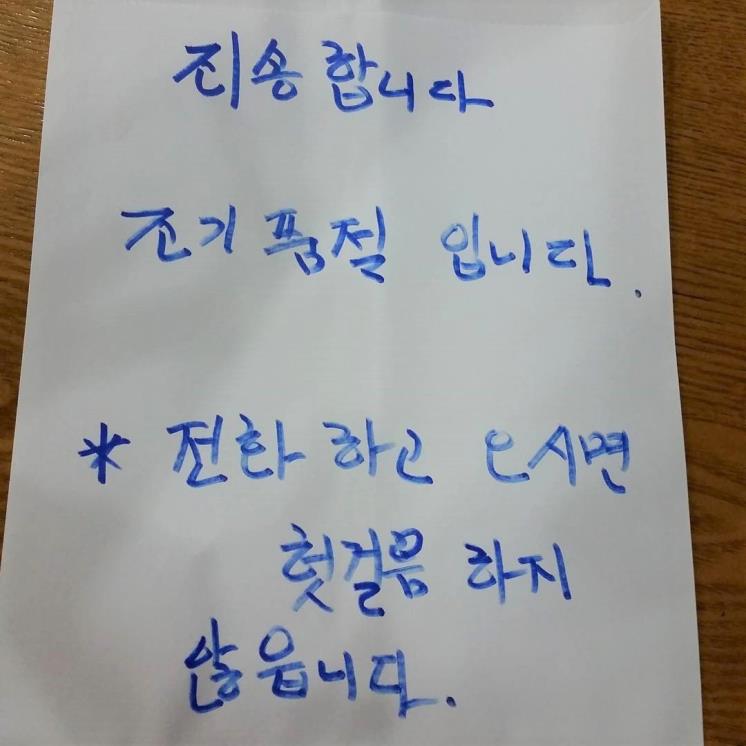 죄송합니다
조기품절 입니다.
* 전화하고 오시면
헛걸음 하지
않읍니다.